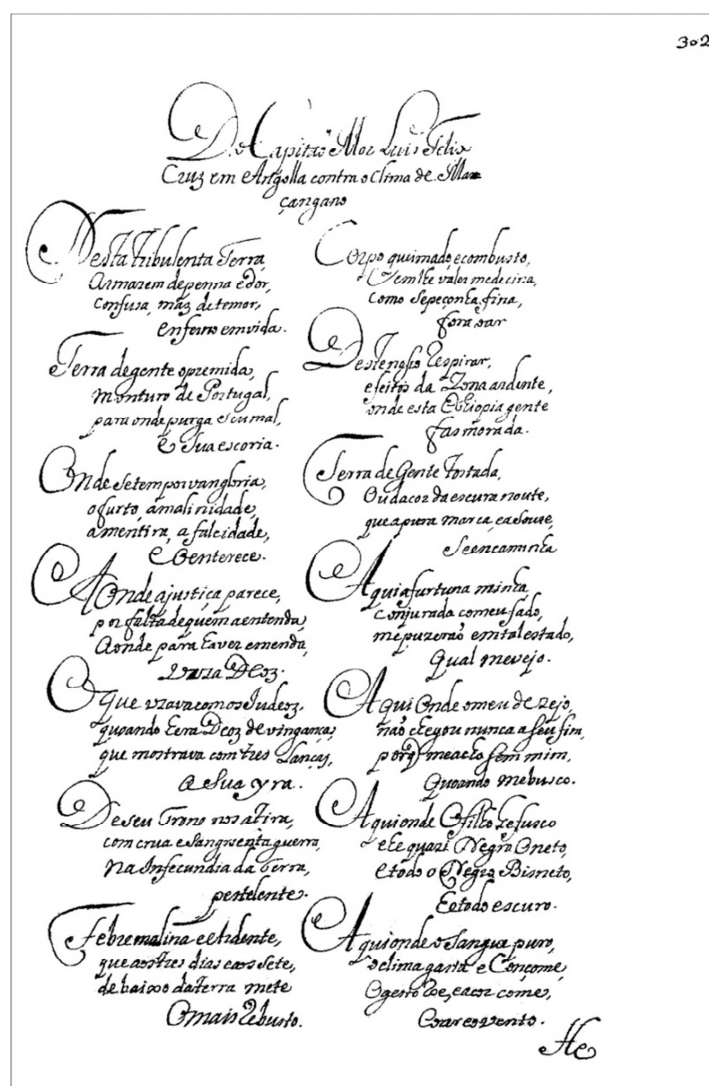 302
Do Capitaõ Mor Luis Felis
Cruz em Angolla contra o clima de Ma=
çangano
Nesta tribulenta Terra,
Armazem de penna e dor,
Confusa, maz de temor,
Enferno em vida.
Terra de gente opremida,
monturo de Portugal,
para onde purga seu mal,
E Sua escoria.
Onde se tem por vangloria,
o furto, a malinidade,
a mentira, a falcidade,
E
Aonde a justiça parece,
por falta de quem a entenda,
Aonde para haver emenda,
Deoz.
O que uzava com os Judeoz,
quoando hera Deoz de vinganças,
que mostrava com tres Lanças,
a Sua yra.
De seu Trono nos atira,
com crua e Sangrenta guerra,
Na Infecundia da Terra,
pestelente.
Febre malina e
que aos tres dias e aos Sete,
de baixo da terra mete
O mais Rebusto.
Corpo queimado e combusto,
Sem lhe valer medecina,
Como se peçonha fina,
fora o ar
Deste nosso Respirar,
efeitos da Zona ardente,
onde esta Ethiopia gente
fas morada.
Terra de Gente Tostada,
da cor da escura noute,
que a pura marca, e asoute,
Se encaminha
Aqui a furtuna minha
Conjurada com meu fado,
me puzeraõ em tal estado,
Qual me vejo.
Aqui Onde o meu dezejo,
naõ chegou nunca a seu fim,
porq me acho Sem mim,
Quoando me busco.
Aqui onde O filho he fusco
e he quazi Negro O neto,
e todo o Negro Bisneto,
E todo escuro.
Aqui onde o Sangue puro,
o clima gasta e Conçome,
O gesto Roe, e a cor come,
O ar e o vento.
He